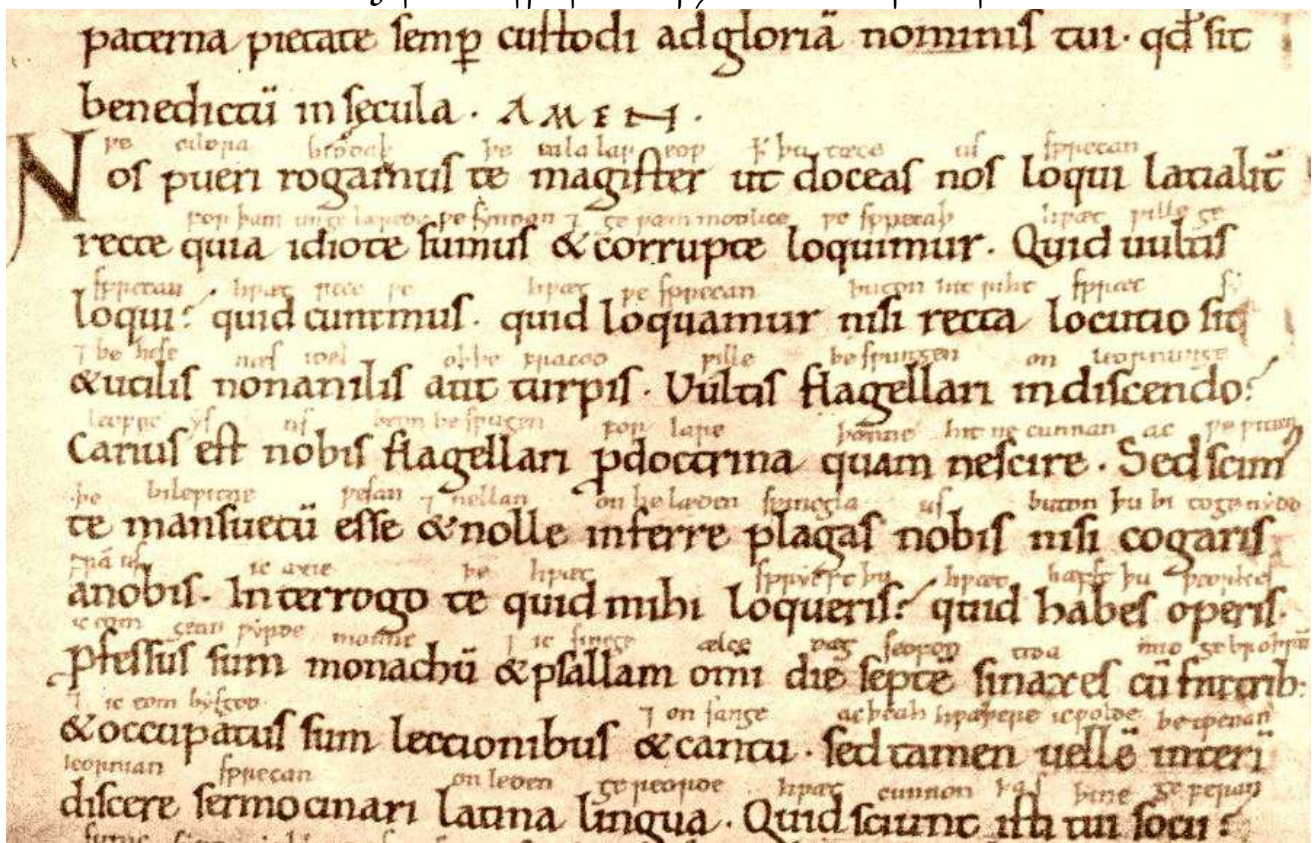 paterna pietate semꝑ custodi ad gloriā nominis tui · qđ sit
benedictū in sęcula · AMEN ·
ƿe cildra biddaþ þe eala lareoƿ þ̵ þu tæce us sprecan
Nos pueri rogamus te magister ut doceas nos loqui latialit̄
forþam ungelærede ƿe syndon ⁊ geƿæmmodlice ƿe sprecaþ hƿæt ƿille ge
recte quia idiote sumus & corrupte loquimur · Quid uultis
sprecan hƿæt rece ƿe hƿæt ƿe sprecan buton hit riht spræc sy
loqui? quid curemus · quid loquamur nisi recta locutio sit
⁊ behefe næs idel oþþe fracod ƿille besƿungen on leornunge
& utilis non anilis aut turpis · Uultis flagellari in discendo?
leofre ys us beon besƿugen for lare þænne hit ne cunnan ac ƿe ƿiten
Carius est nobis flagellari ꝓ doctrina quam nescire · Sed scim᾽
þe bileƿitne ƿesan ⁊ nellan on belæden sƿincgla us buton þu bi togenydd
te mansuetū esse & nolle inferre plagas nobis nisi cogaris
frā us ic axie þe hƿæt sprycst þu hƿæt hæfst þu ƿeorkes
a nobis · Interrogo te quid mihi loqueris? quid habes operis ·
ic eom geanƿyrde monuc ⁊ ic sincge ælce dæg seofon tida mid gebroþrū
Ꝓfessus sum monachū & psallam om̄i die septē sinaxes cū fratrib:
⁊ ic eom bysgod ⁊ on sange ac þeah hƿæþere ic ƿolde betƿenan
& occupatus sum lectionibus & cantu · sed tamen uellē interī
leornian sprecan on leden gereorde hƿæt cunnon þas þine geferan
discere sermocinari latina lingua · Quid sciunt isti tui socii?